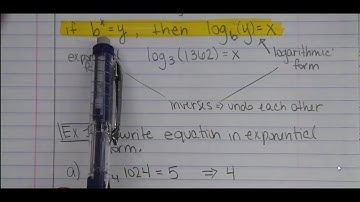 if b^x = y, then log_b(y) = x
log_3(1362) = x logarithmic form
inverses ⇒ undo each other
Ex 1 write equation in exponential
form.
a) 4 1024 = 5 ⇒ 4